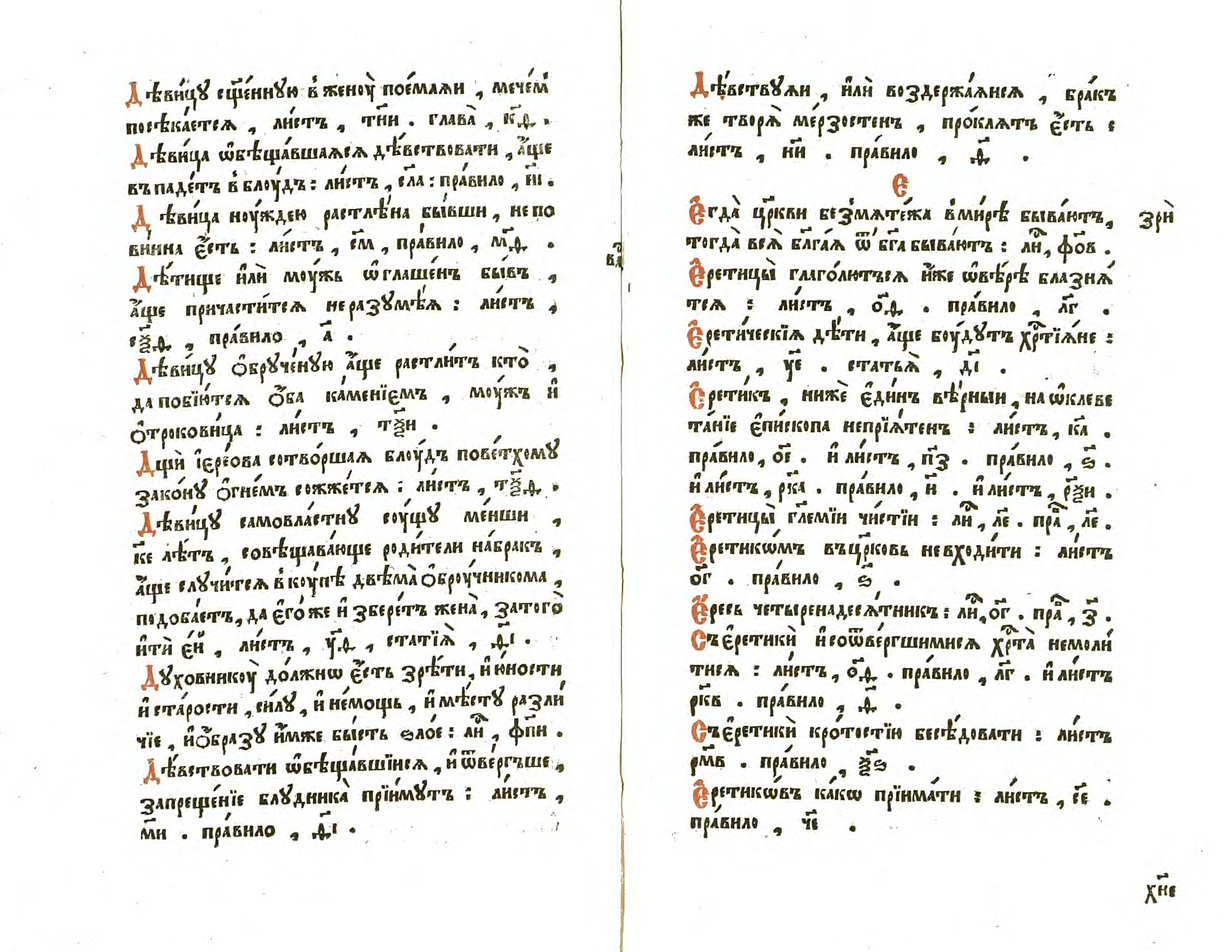 Дѣви́цу сщ҃е́нную в̾женоу̀ пое́мляи , мече́м̾
посѣка́ется , ли́стъ , тн҃и . глава̀ , к҃д .
Дѣви́ца ѡ҆бѣща́вшаяся дѣ́вствовати , а҆́ще
въпаде́тъ в̾блоу́дъ : ли́стъ , с҃ла : пра́вило , н҃і .
Дѣви́ца ноу́ждею растлѣ́на бы́вши , непо
ви́нна є҆́сть : ли́стъ , с҃м , пра́вило , м҃д .
Дѣ́тище и҆лѝ моу́жь ѡ҆глаше́н̾ бы́въ ,
а҆́ще причасти́тся неразумѣ́я : ли́стъ ,
сѯ҃д , пра́вило , а҃ .
Дѣви́цу ѻ҆бруче́ную а҆́ще растли́тъ кто̀ ,
да побію́тся ѻ҆́ба ка́меніємъ , моу́жъ и҆
ѻ҆трокови́ца : ли́стъ , тѯ҃и .
Дщѝ і҆ере́ова сотво́ршая блоу́дъ пове́тхому
зако́ну ѻ҆гне́мъ сожже́тся : ли́стъ , тѯ҃д .
Дѣви́цу самовла́стну соу́щу ме́нши ,
к҃е лѣ́тъ , совѣщава́юще роди́тели на́бракъ ,
а҆́ще случи́тся в̾коу́пѣ двѣма̀ ѻ҆броу́чникома ,
подоба́етъ , да є҆го́же и҆збере́тъ жена̀ , затого̀
и҆тѝ є҆́й , ли́стъ , у҃д , статїя̀ , д҃і .
Духовникоу̀ до́лжно є҆́сть зрѣ́ти , и҆ ю҆́ности
и҆ ста́рости , си́лу , и҆ не́мощь , и҆ мѣ́сту разли́
чїе , и҆ ѻ҆́бразу и҆́мже бы́сть ѕло́е : ли́ , фп҃и .
Дѣ́вствовати ѡ҆бѣща́вшїися , и҆ ѿве́ргъше ,
запреще́нїе блудника̀ прїи́мутъ : ли́стъ ,
м҃и . пра́вило , д҃і .
Дѣ́вствуяи , и҆лѝ воздержа́яися , бра́къ
же творя̀ ме́рзостенъ , про́клятъ є҆́сть с
ли́стъ , н҃и . пра́вило , д҃ .
Є
Є҆гда̀ цр҃кви безмяте́жа в̾ми́рѣ быва́ютъ , зрѝ
тогда̀ вся̀ бл҃гая ѿ бг҃а быва́ютъ : ли́ , фо҃в .
Є҆ретицы̀ глаго́лются и҆́же ѡ҆вѣ́рѣ блазня́
тся : ли́стъ , о҃д . пра́вило , л҃г .
Є҆рети́ческїя дѣ́ти , а҆́ще боу́дутъ хр҃тїя́не :
ли́стъ , у҃е . статья̀ , д҃і .
Є҆рети́къ , нижѐ є҆ди́нъ вѣ́рныи , на ѡ҆клеве
та́нїе є҆пи́скопа непрїя́тенъ : ли́стъ , к҃а .
пра́вило , о҃е . и҆ ли́стъ , п҃з . пра́вило , ѕ҃ .
и҆ ли́стъ , рк҃а . пра́вило , и҃ . и҆ ли́стъ , рѯ҃и .
Є҆ретицы̀ гл҃емїи чи́стїи : ли́ , л҃е . пра́ , л҃е .
Є҆ретико́мъ въцр҃ковь невходи́ти : ли́стъ
о҃г . пра́вило , ѕ҃ .
Є҆́ресь четыренадеся́тникъ : ли́ , о҃г . пра́ , з҃ .
Съ є҆ретикѝ и҆ со ѿве́ргшимися хр҃та̀ немоли́
тися : ли́стъ , о҃д . пра́вило , л҃г . и҆ ли́стъ
рк҃в . пра́вило , д҃ .
Съ є҆ретикѝ кро́тостїю бесѣ́довати : ли́стъ
рм҃в . пра́вило , ѯ҃ѕ .
Є҆ретико́въ ка́кѡ прїима́ти : ли́стъ , с҃е .
пра́вило , ч҃е .
хн҃е